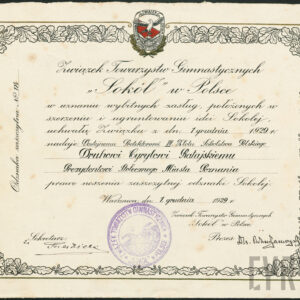 Związek Towarzystw Gimnastycznych
„Sokół" w Polsce
w uznaniu wybitnych zasług, położonych w
szerzeniu i ugruntowaniu idei Sokolej,
uchwałą Związku z dn. 1 grudnia 1929 r.
nadaje
Druhowi Cyrylowi Ratajskiemu
Prezydentowi Stołecznego Miasta Poznania
prawo noszenia zaszczytnej odznaki Sokolej.
Warszawa d. 1 grudnia 1929
Związek Towarzystw Gimnastycznych
Sokół w Polsce
Sekretarz
Prezes
Odznaka zaszczytna No